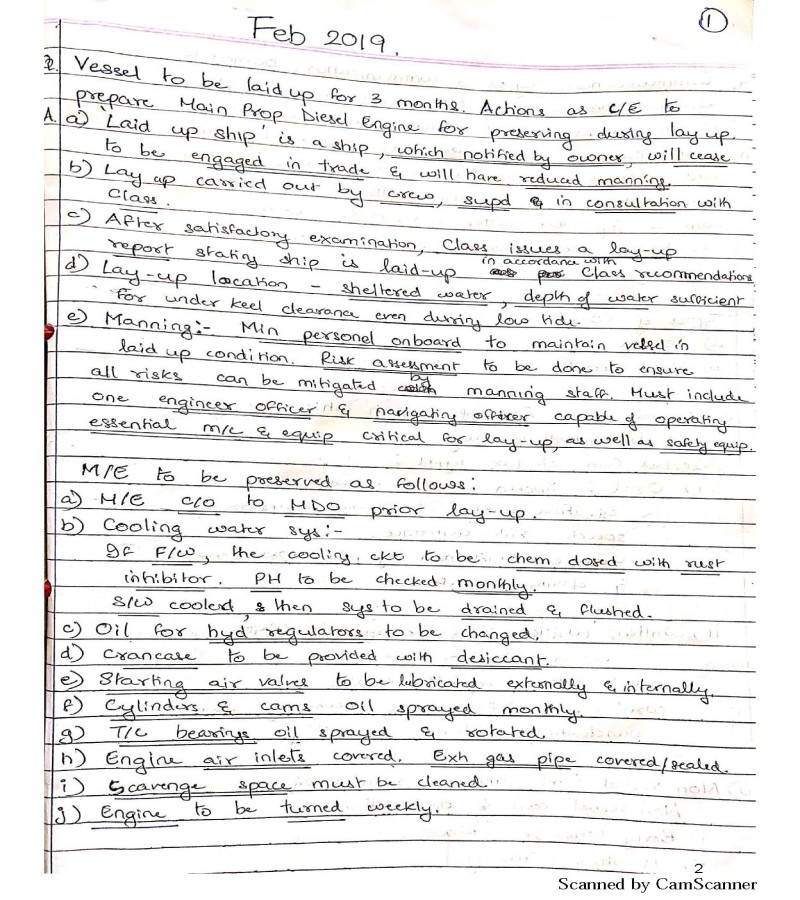 Feb 2019.
1
Q. Vessel to be laid up for 3 months. Actions as C/E to
prepare Main Prop Diesel Engine for preserving during lay up.
A. a) 'Laid up ship' is a ship, which notified by owner, will cease
to be engaged in trade & will have reduced manning.
b) Lay up carried out by crew, supd & in consultation with
Class.
c) After satisfactory examination, Class issues a lay-up
report stating ship is laid-up in accordance with Class recommendations
d) Lay-up location - sheltered water, depth of water sufficient
for under keel clearance even during low tide.
e) Manning:- Min personel onboard to maintain vessel in
laid up condition. Risk assessment to be done to ensure
all risks can be mitigated by manning staff. Must include
one engineer officer & navigating officer capable of operating
essential m/c & equip critical for lay-up, as well as safety equip.
M/E to be preserved as follows:
a) M/E c/o to MDO prior lay-up.
b) Cooling water sys:-
If F/W, the cooling ckt to be chem dosed with rust
inhibitor. PH to be checked monthly.
S/W cooled, then sys to be drained & flushed.
c) Oil for hyd regulators to be changed.
d) Crancase to be provided with desiccant.
e) Starting air valves to be lubricated externally & internally.
f) Cylinders & cams oil sprayed monthly.
g) T/C bearings oil sprayed & rotated.
h) Engine air inlets covered. Exh gas pipe covered/sealed.
i) Scavenge space must be cleaned
j) Engine to be turned weekly.
2
Scanned by CamScanner